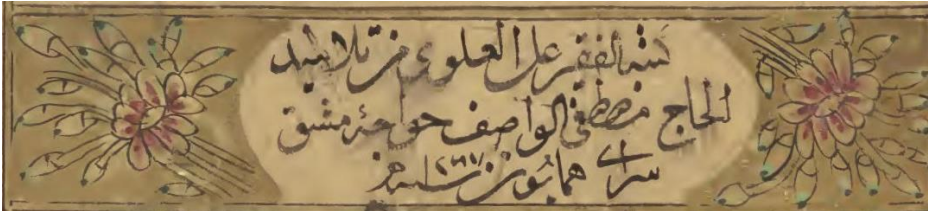 كتبه الفقير علي العلوي من تلاميذ
الحاج مصطفى الواصف خواجهٔ مشق
سراي همايون سنه